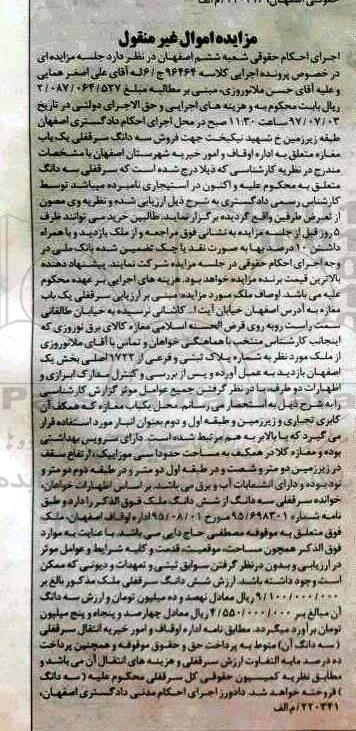 حقوقی اصفهان، ۲۲۰۲۹۶/م الف
مزایده اموال غیر منقول
اجرای احکام حقوقی شعبه ششم اصفهان در نظر دارد جلسه مزایده ای
در خصوص پرونده اجرایی کلاسه ۹۶۴۶۴ج/۶ له آقای علی اصغر همایی
و علیه آقای حسن ملانوروزی، مبنی بر مطالبه مبلغ ۲/۰۸۷/۰۶۴/۵۲۷
ریال بابت محکوم به و هزینه های اجرایی و حق الاجرای دولتی در تاریخ
۹۷/۰۷/۰۳ ساعت ۱۱:۳۰ صبح در محل اجرای احکام دادگستری اصفهان
طبقه زیرزمین خ شهید نیکبخت جهت فروش سه دانگ سرقفلی یک باب
مغازه متعلق به اداره اوقاف و امور خیریه شهرستان اصفهان با مشخصات
مندرج در نظریه کارشناسی که ذیلا درج شده است که سرقفلی سه دانگ
متعلق به محکوم علیه و اکنون در استیجاری نامبرده میباشد توسط
کارشناس رسمی دادگستری به شرح ذیل ارزیابی شده و نظریه وی مصون
از تعرض طرفین واقع گردیده برگزار نماید. طالبین خرید می توانند ظرف
۵ روز قبل از جلسه مزایده به نشانی فوق مراجعه و از ملک بازدید و با همراه
داشتن ۱۰ درصد بها به صورت نقد یا چک تضمین شده بانک ملی در
وجه اجرای احکام حقوقی در جلسه مزایده شرکت نمایند. پیشنهاد دهنده
بالاترین قیمت برنده مزایده خواهد بود. هزینه های اجرایی بر عهده محکوم
علیه می باشد. اوصاف ملک مورد مزایده: مبنی بر ارزیابی سرقفلی یک باب
مغازه به آدرس اصفهان خیابان آیت ا... کاشانی نرسیده به خیابان طالقانی
سمت راست روبه روی قرض الحسنه اسلامی مغازه کالای برق نوروزی که
اینجانب کارشناس منتخب با هماهنگی خواهان و تماس با آقای ملانوروزی
از ملک مورد نظر به شماره پلاک ثبتی و فرعی از ۱۷۲۲ اصلی بخش یک
اصفهان بازدید به عمل آورده و پس از بررسی و کنترل مدارک ابرازی و
اظهارات دو طرف، با در نظر گرفتن جمیع عوامل موثر گزارش کارشناسی
را به شرح ذیل به استحضار می رسانم. محل یکباب مغازه که همکف آن
کابری تجاری و زیرزمین و طبقه اول و دوم بعنوان انبار مورد استفاده قرار
می گیرد که با بالابر به هم مرتبط شده است. دارای سرویس بهداشتی
بوده و مغازه کلا در همکف به مساحت حدودا سی موزاییک، ارتفاع سقف
در زیرزمین دو متر و شصت و در طبقه اول دو متر و در طبقه دوم دو متر و
نود بوده و دارای انشعابات آب و برق می باشد. بر اساس اظهارات خواهان،
خوانده سرقفلی سه دانگ از شش دانگ ملک فوق الذکر را دارد و طبق
نامه شماره ۹۵/۶۹۸۳۰۱ مورخ ۹۵/۰۸/۰۱ اداره اوقاف اصفهان، ملک
فوق متعلق به موقوفه مصطفی حاج دایی می باشد. با عنایت به موارد
فوق الذکر همچون مساحت، موقعیت، قدمت و کلیه شرایط و عوامل موثر
در ارزیابی و بدون در نظر گرفتن سوابق ثبتی و تعهدات و دیونی که ممکن
است وجود داشته باشد. ارزش شش دانگ سرقفلی ملک مذکور بالغ بر
۹/۱۰۰/۰۰۰/۰۰۰ ریال معادل نهصد و ده میلیون تومان و ارزش سه دانگ
آن مبالغ بر ۴/۵۵۰/۰۰۰/۰۰۰ ریال معادل چهارصد و پنجاه و پنج میلیون
تومان برآورد میگردد. مطابق نامه اداره اوقاف و امور خیریه انتقال سرقفلی
( سه دانگ آن) منوط به پرداخت حق و حقوق موقوفه و همچنین پرداخت
ده درصد مابه التفاوت ارزش سرقفلی و هزینه های انتقال آن می باشد و
مطابق نظریه کمیسیون حقوقی کل سرقفلی محکوم علیه ( سه دانگ
) فروخته خواهد شد. دادورز اجرای احکام مدنی دادگستری اصفهان،
۲۲۰۳۴۱/م الف